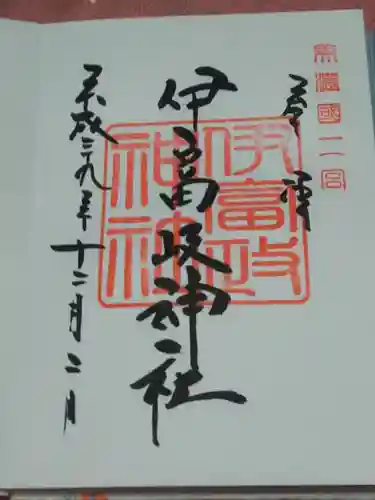 美濃國二宮
奉拝
伊富岐神社
伊富岐神社
平成二十九年十二月二日